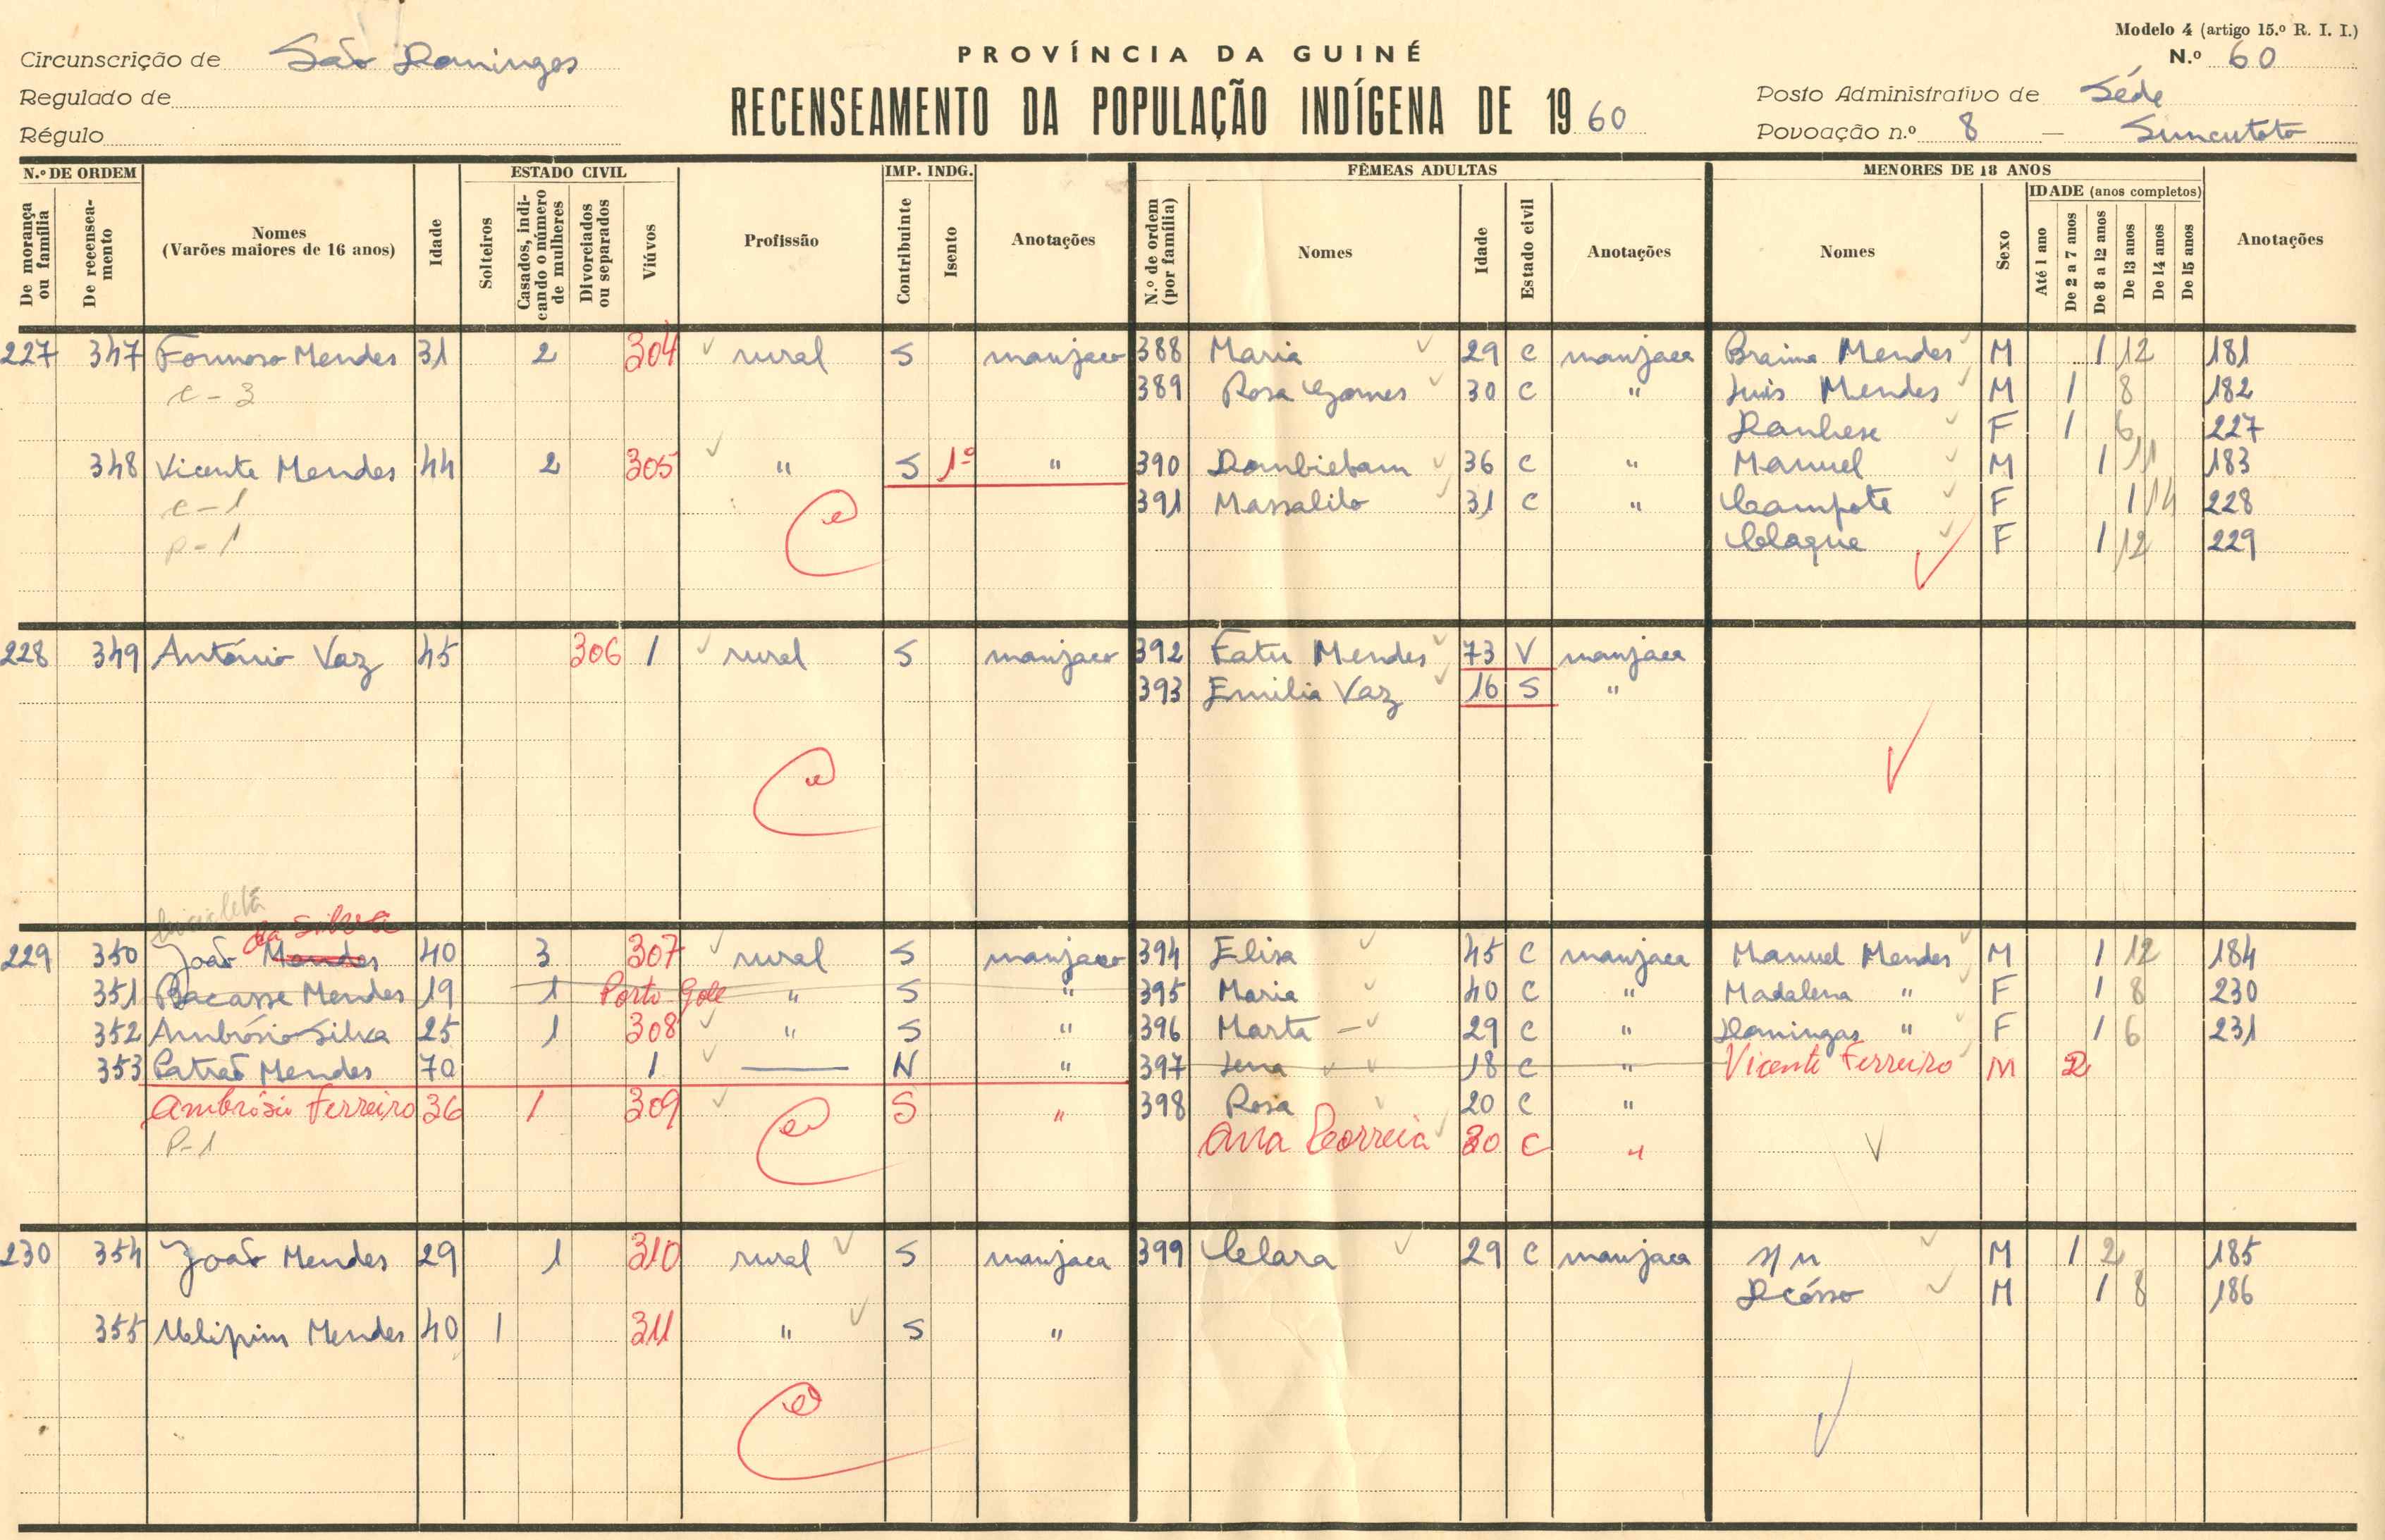 Modelo 4 (artigo 15.º R. I. I.)
Circunscrição de São Domingos
PROVÍNCIA DA GUINÉ
N.º 60
Regulado de
RECENSEAMENTO DA POPULAÇÃO INDÍGENA DE 1960
Posto Administrativo de Séde
Régulo
Povoação n.º 8 — Suncutoto
N.º DE ORDEM
ESTADO CIVIL
IMP. INDG.
FÊMEAS ADULTAS
MENORES DE 18 ANOS
De morança ou família
De reensea-mento
Nomes (Varões maiores de 16 anos)
Idade
Solteiros
Casados, indi-cando o número de mulheres
Divorciados ou separados
Viúvos
Profissão
Contribuinte
Isento
Anotações
N.º de ordem (por família)
Nomes
Idade
Estado civil
Anotações
Nomes
Sexo
IDADE (anos completos)
Até 1 ano
De 2 a 7 anos
De 8 a 12 anos
De 13 anos
De 14 anos
De 15 anos
Anotações
227 347 Formoso Mendes 31 2 304 rural S manjaco 388 Maria 29 C manjaca Braima Mendes M 1 12 181
c-3 389 Rosa Gomes 30 C " Luis Mendes M 1 8 182
Danhese F 1 6 227
348 Vicente Mendes 44 2 305 " S 1º " 390 Dombiebam 36 C " Manuel M 1 11 183
c-1 391 Massalito 31 C " Campote F 1 14 228
P-1 Claque F 1 12 229
228 349 António Vaz 45 306 1 rural S manjaco 392 Fatu Mendes 73 V manjaca
393 Emilia Vaz 16 S "
da Silva
229 350 João Mendes 40 3 307 rural S manjaco 394 Elisa 45 C manjaca Manuel Mendes M 1 12 184
351 Bacasse Mendes 19 1 Porto Gole " S " 395 Maria 40 C " Madalena " F 1 8 230
352 Ambrósio Silva 25 1 308 " S " 396 Marta 29 C " Domingas " F 1 6 231
353 Patrão Mendes 70 1 N " 397 18 C " Vicente Ferreiro M 2
Ambrósio Ferreiro 36 1 309 S " 398 Rosa 20 C "
P-1 Ana Correia 30 C "
230 354 João Mendes 29 1 310 rural S manjaca 399 Clara 29 C manjaca s/n M 1 2 185
M 1 8 186
355 Mendes 40 1 311 " S "